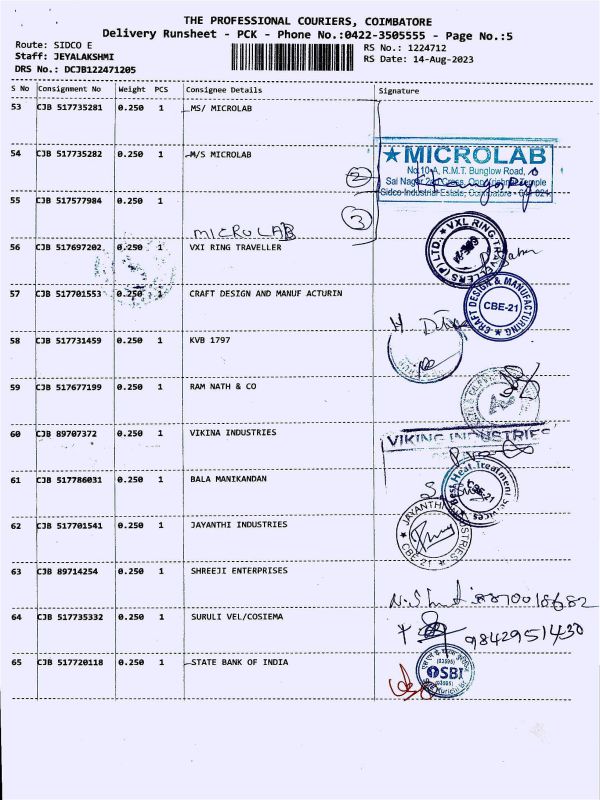 THE PROFESSIONAL COURIERS, COIMBATORE
Delivery Runsheet - PCK - Phone No.:0422-3505555 - Page No.:5
Route: SIDCO E
RS No.: 1224712
Staff: JEYALAKSHMI
RS Date: 14-Aug-2023
DRS No.: DCJB122471205
S No Consignment No Weight PCS Consignee Details Signature
53 CJB 517735281 0.250 1 MS/ MICROLAB
54 CJB 517735282 0.250 1 M/S MICROLAB
★MICROLAB
No.10-A, R.M.T. Bunglow Road,
Sai Nagar
Temple
Sidco Industrial Estate, Coimbatore - 641 021
2
55 CJB 517577984 0.250 1
3
MICROLAB
56 CJB 517697202 0.250 1 VXI RING TRAVELLER
VXL RING TRAVELLERS (P) LTD.
57 CJB 517701553 0.250 1 CRAFT DESIGN AND MANUF ACTURIN
CRAFT DESIGN & MANUFACTURING
CBE-21
58 CJB 517731459 0.250 1 KVB 1797
59 CJB 517677199 0.250 1 RAM NATH & CO
60 CJB 89707372 0.250 1 VIKINA INDUSTRIES
VIKING INDUSTRIES
61 CJB 517786031 0.250 1 BALA MANIKANDAN
Best Heat Treatment Services
CBE-21
62 CJB 517701541 0.250 1 JAYANTHI INDUSTRIES
JAYANTHI INDUSTRIES
CBE-21
63 CJB 89714254 0.250 1 SHREEJI ENTERPRISES
8870018682
64 CJB 517735332 0.250 1 SURULI VEL/COSIEMA
9842951430
65 CJB 517720118 0.250 1 STATE BANK OF INDIA
(03595)
SBI
(03595)